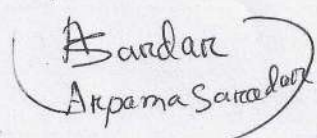 ASardar
Arpama Saradar